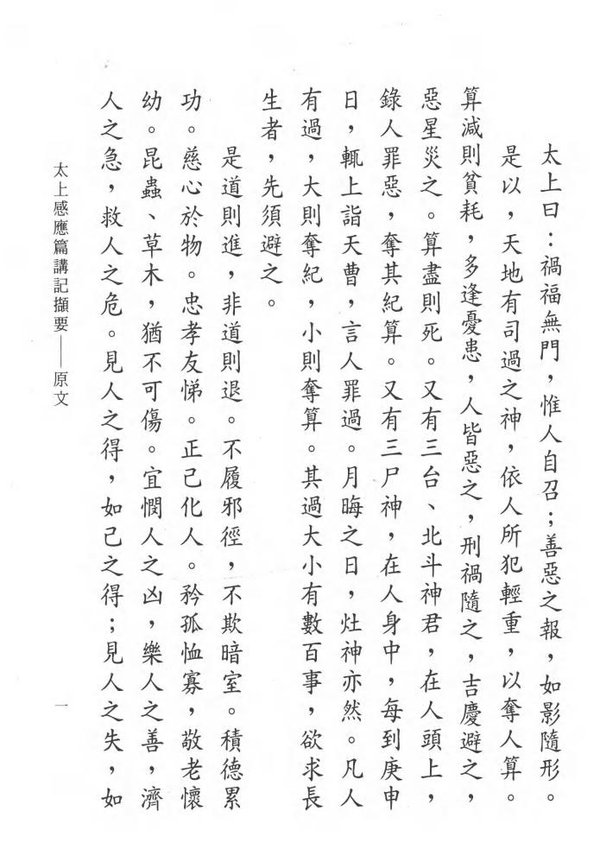 太上曰：禍福無門，惟人自召；善惡之報，如影隨形。
是以，天地有司過之神，依人所犯輕重，以奪人算。
算減則貧耗，多逢憂患，人皆惡之，刑禍隨之，吉慶避之，
惡星災之。算盡則死。又有三台、北斗神君，在人頭上，
錄人罪惡，奪其紀算。又有三尸神，在人身中，每到庚申
日，輒上詣天曹，言人罪過。月晦之日，灶神亦然。凡人
有過，大則奪紀，小則奪算。其過大小有數百事，欲求長
生者，先須避之。
是道則進，非道則退。不履邪徑，不欺暗室。積德累
功。慈心於物。忠孝友悌。正己化人。矜孤恤寡，敬老懷
幼。昆蟲、草木，猶不可傷。宜憫人之凶，樂人之善，濟
人之急，救人之危。見人之得，如己之得；見人之失，如
太上感應篇講記擷要──原文
一